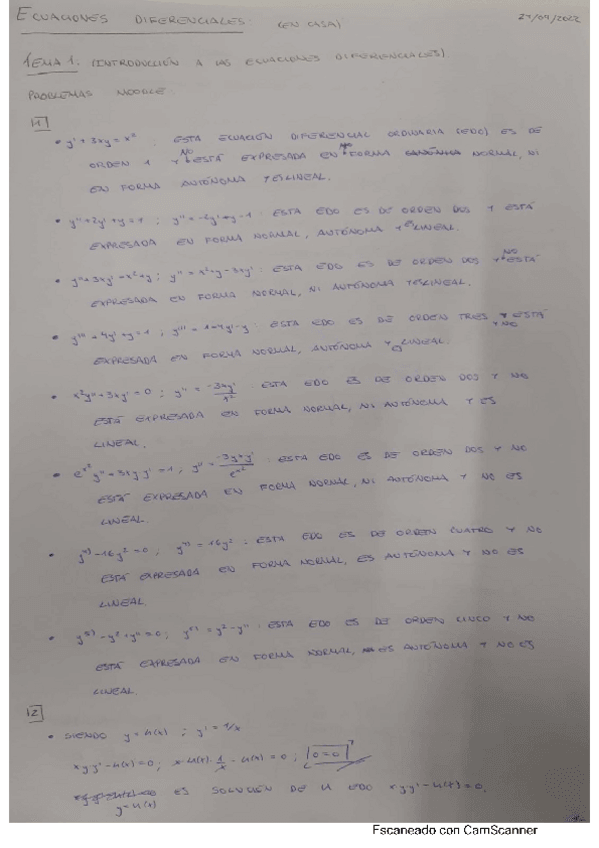 ECUACIONES DIFERENCIALES. (EN CASA) 27/09/2022
TEMA 1: (INTRODUCCIÓN A LAS ECUACIONES DIFERENCIALES).
PROBLEMAS MOODLE:
1.1
• y' + 3xy = x² : ESTA ECUACIÓN DIFERENCIAL ORDINARIA (EDO) ES DE
ORDEN 1 Y NO ESTÁ EXPRESADA EN FORMA NORMAL, NI
EN FORMA AUTÓNOMA Y ES LINEAL.
• y'' + 2y' + y = 1 ; : ESTA EDO ES DE ORDEN DOS Y ESTÁ
EXPRESADA EN FORMA NORMAL, AUTÓNOMA Y ES LINEAL.
• y'' + 3xy' = x² + y ; y'' = x² + y - 3xy' : ESTA EDO ES DE ORDEN DOS Y NO ESTÁ
EXPRESADA EN FORMA NORMAL, NI AUTÓNOMA Y ES LINEAL.
• y''' + 4y' + y = 1 ; : ESTA EDO ES DE ORDEN TRES Y NO ESTÁ
EXPRESADA EN FORMA NORMAL, AUTÓNOMA Y LINEAL.
• x²y'' + 3xy' = 0 ; y'' = -3xy'/x² : ESTA EDO ES DE ORDEN DOS Y NO
ESTÁ EXPRESADA EN FORMA NORMAL, NI AUTÓNOMA Y ES
LINEAL.
• : ESTA EDO ES DE ORDEN DOS Y NO
ESTÁ EXPRESADA EN FORMA NORMAL, NI AUTÓNOMA Y NO ES
LINEAL.
• y⁴⁾ - 16y² = 0 ; y⁴⁾ = 16y² : ESTA EDO ES DE ORDEN CUATRO Y NO
ESTÁ EXPRESADA EN FORMA NORMAL, ES AUTÓNOMA Y NO ES
LINEAL.
• y⁵⁾ - y² + y'' = 0 ; y⁵⁾ = y² - y'' : ESTA EDO ES DE ORDEN CINCO Y NO
ESTÁ EXPRESADA EN FORMA NORMAL, ES AUTÓNOMA Y NO ES
LINEAL.
1.2
• SIENDO y = Ln(x) ; y' = 1/x
xyy' - Ln(x) = 0 ; x·Ln(x)·1/x - Ln(x) = 0 ; 0=0
y = Ln(x) ES SOLUCIÓN DE LA EDO xyy' - Ln(x) = 0.
Escaneado con CamScanner